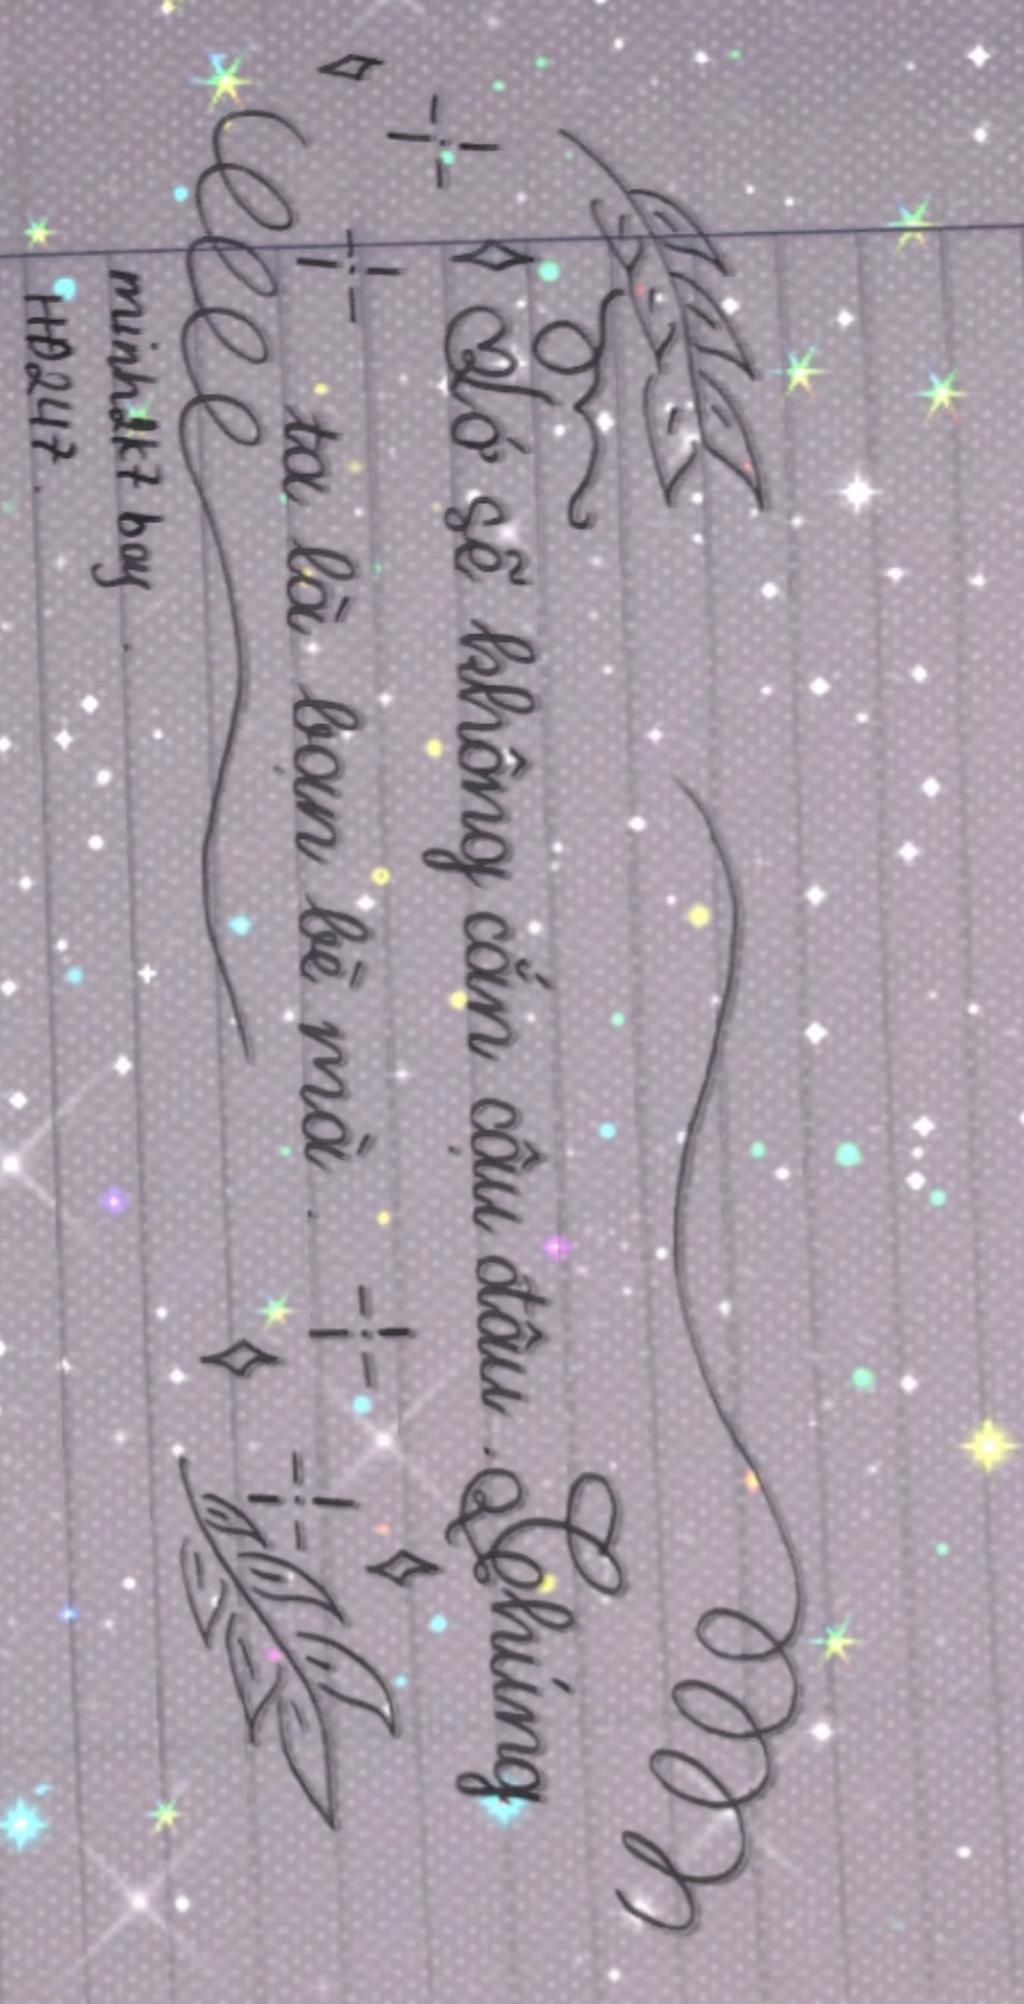 Nó sẽ không cắn cậu đâu. Chúng
ta là bạn bè mà.
minh2k7 bay.
HĐ247.